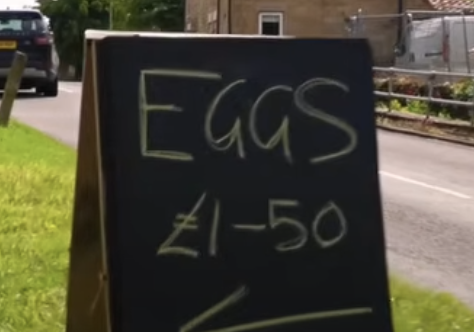 EGGS
£1-50